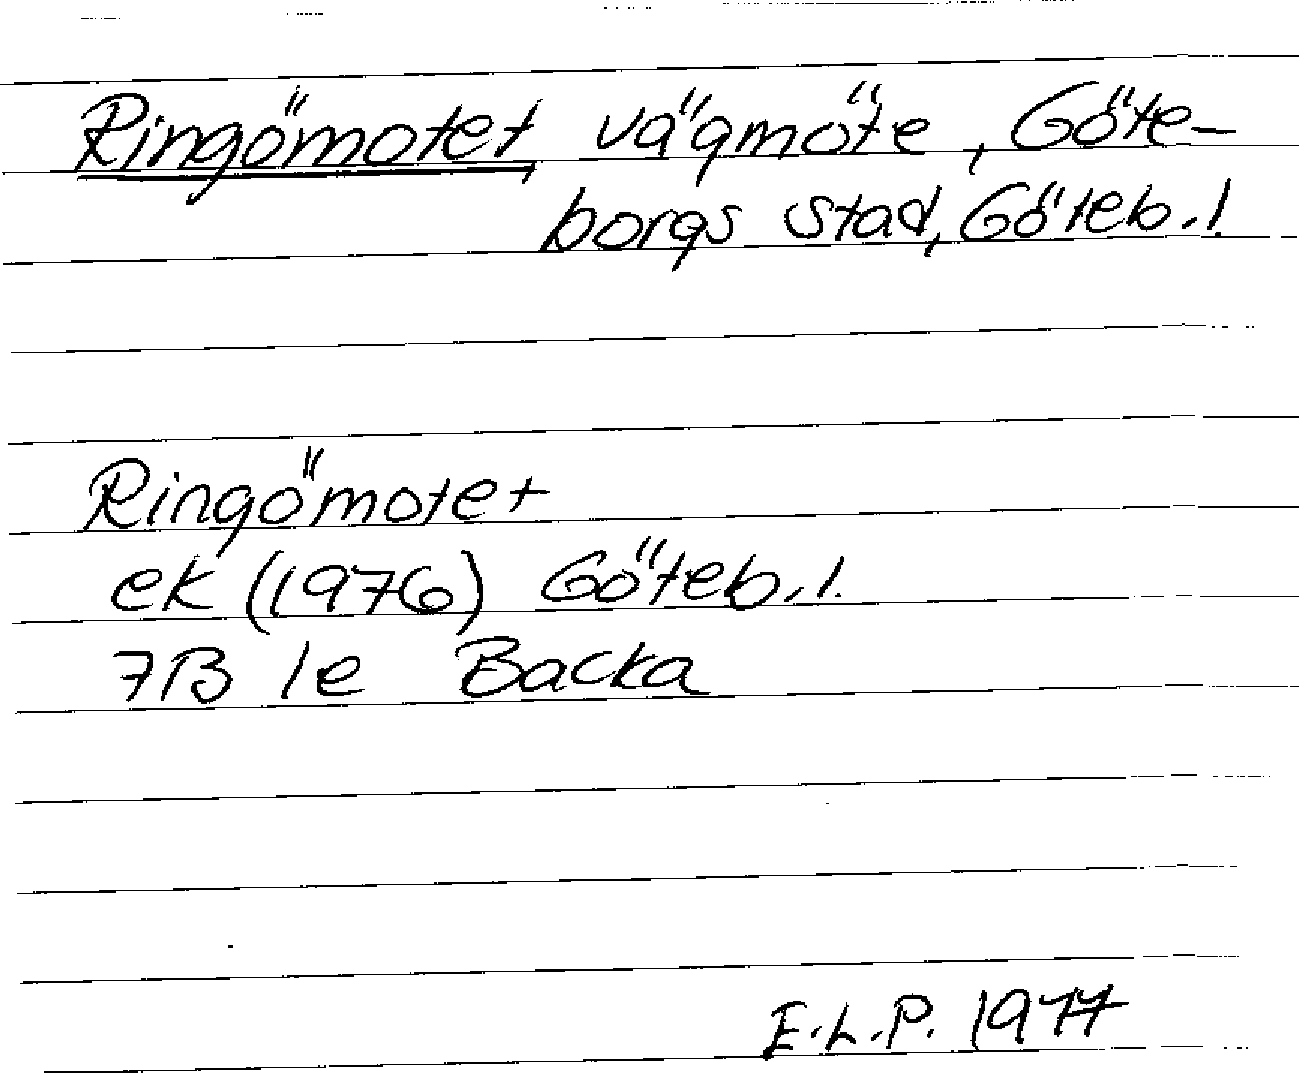 Ringömotet vägmöte, Göte-
borgs stad, Göteb. l.
Ringömotet
ek (1976) Göteb. l.
7B 1e Backa
E.L.P. 1977